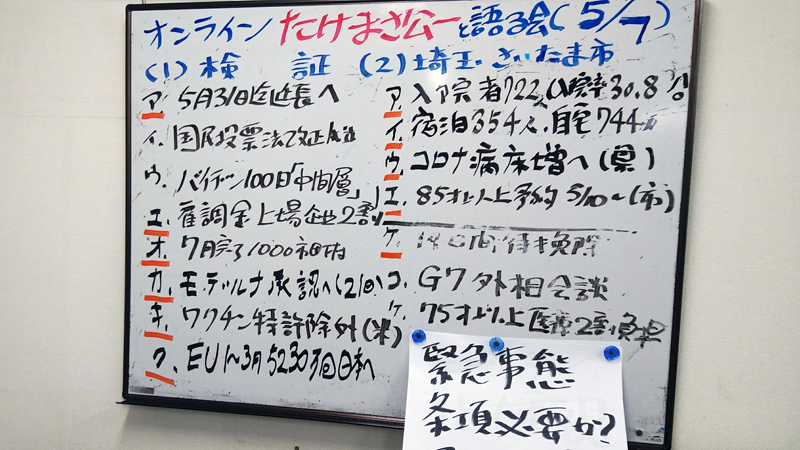 オンライン たけまさ公一と語る会(5/7)
(1) 検 証 (2) 埼玉・さいたま市
ア. 5月31日迄延長へ
イ. 国民投票法改正
ウ. バイデン100日「中間層」
エ. 雇調金上場企业2割
オ. 7月完了1000
カ. モデルナ承認へ(2回)
キ. ワクチン特許除外(米)
ク. EU1〜3月5230万回日本へ
ア. 入院者722人 30.8
イ. 宿泊354人. 自宅744
ウ. コロナ病床増へ(県)
エ. 85才以上予約 5/10〜(市)
ケ. 14日間待
コ. G7外相会談
ケ. 75才以上医療2割負担
緊急事態
条項必要か?